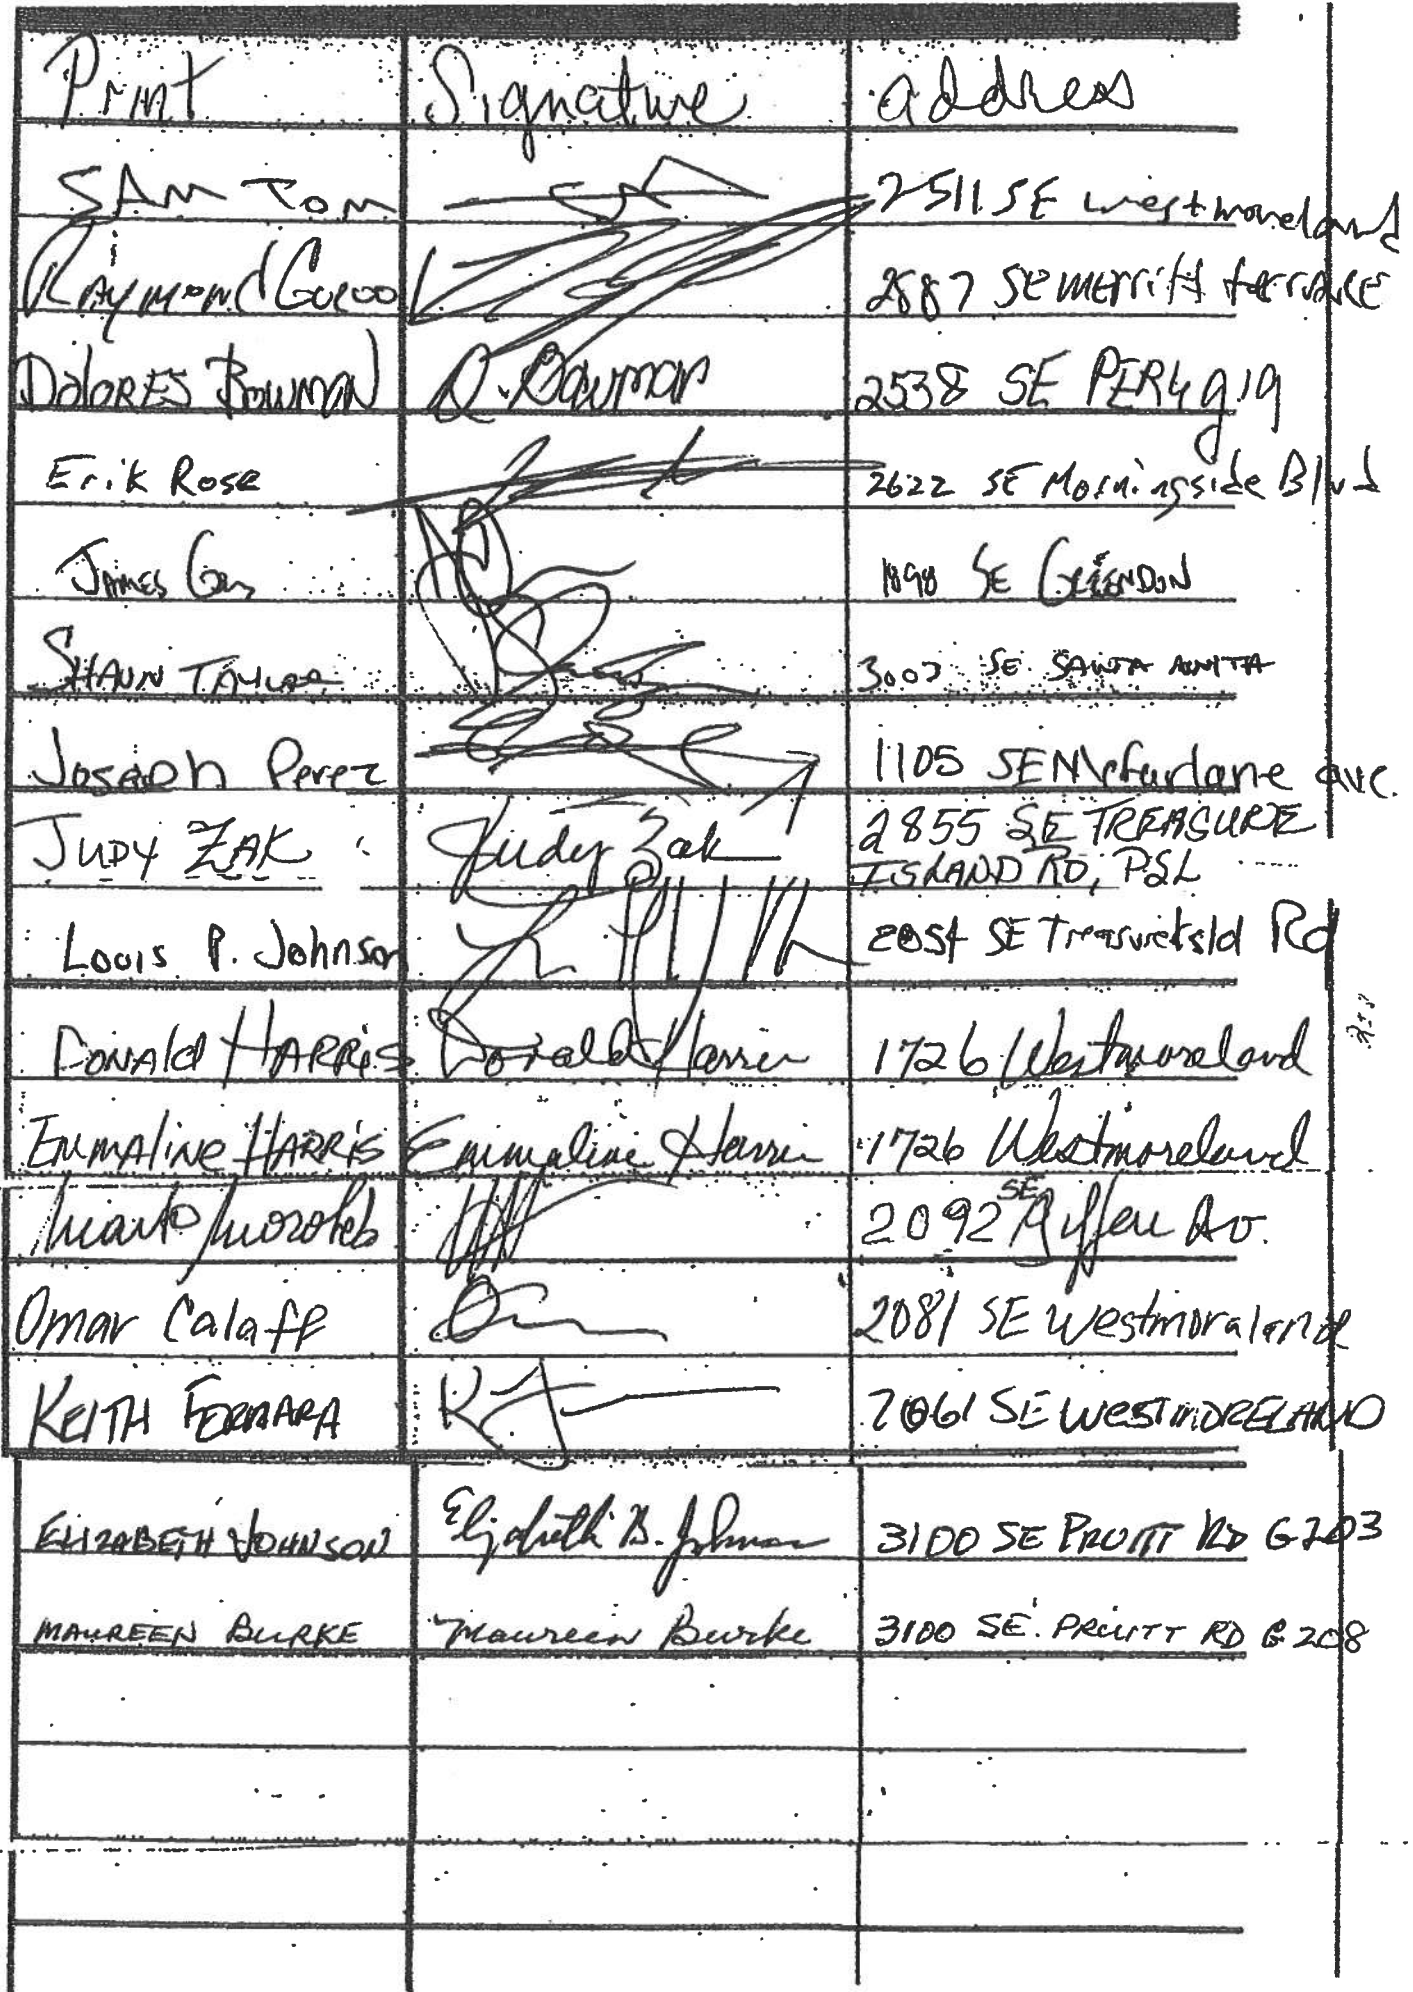 Print Signature address
SAM TOM 2511 SE westmoreland
Raymond 2887 SE merritt terrace
DOLORES BOWMAN D. Bowman 2538 SE
Erik Rose 2622 SE Morningside Blvd
JAMES 1898 SE
SHAUN TAYLOR SE SANTA ANITA
Joseph Perez 1105 SE Mcfarlane ave.
JUDY ZAK Judy Zak 2855 SE TREASURE
ISLAND RD, PSL
Louis P. Johnson SE Rd
DONALD HARRIS Donald Harris 1726 Westmoreland
EMMALINE HARRIS Emmaline Harris 1726 Westmoreland
2092 SE Av.
Omar Calaff 2081 SE Westmoraland
KEITH 2061 SE WESTMORELAND
ELIZABETH JOHNSON Elizabeth B. Johnson 3100 SE PRUITT RD G203
MAUREEN BURKE Maureen Burke 3100 SE. PRUITT RD G 208